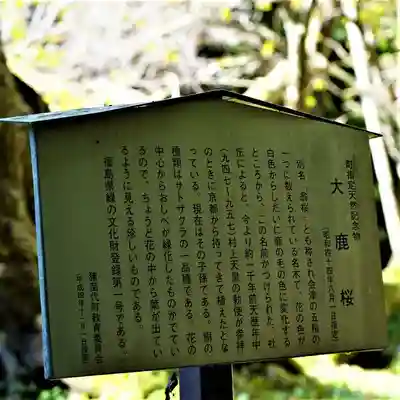 町指定天然記念物
大鹿桜
(昭和五十四年八月一日指定)
別名「翁桜」とも称され会津の五桜の
一つに数えられている名木で、花の色が
白色からしだいに鹿の毛の色に変化する
ところから、この名前がつけられた。社
伝によると、今より約一千年前天暦年中
(九四七~九五七)村上天皇の勅使が参拝
のときに京都から持ってきて植えたとな
っている。現在はその子孫である。樹の
種類はサトザクラの一品種である。花の
中心からおしべが緑化したものがでてい
るので、ちょうど花の中から葉が出てい
るように見える珍しいものである。
福島県緑の文化財登録第一号である。
猪苗代町教育委員会